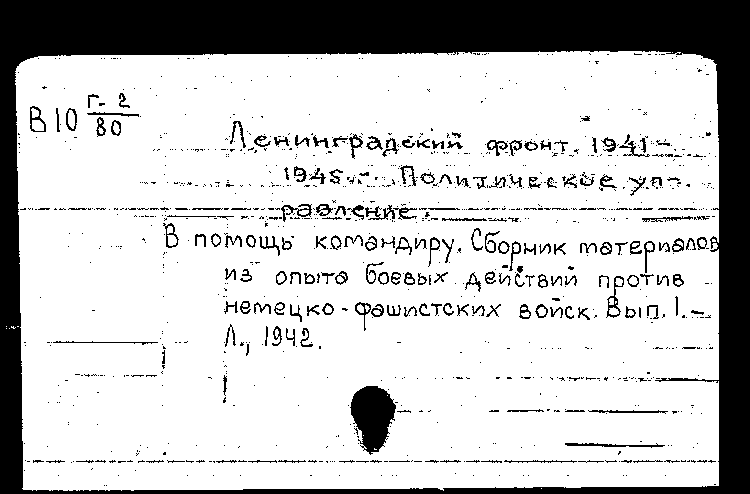 В10 Г-2/80
Ленинградский фронт. 1941-
1945.- Политическое уп-
равление.
В помощь командиру. Сборник материалов
из опыта боевых действий против
немецко-фашистских войск. Вып. 1.-
Л., 1942.